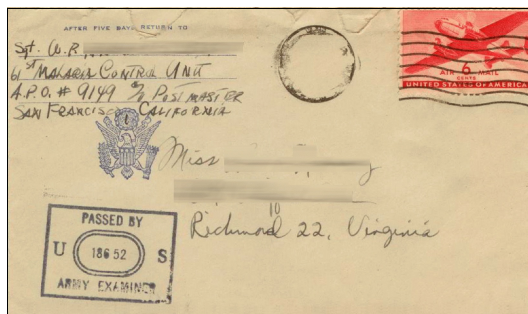 AFTER FIVE DAYS RETURN TO
Sgt. W. R.
61st MALARIA CONTROL UNIT
A.P.O. # 9149 c/o POSTMASTER
SAN FRANCISCO CALIFORNIA
6
AIR MAIL
CENTS
UNITED STATES OF AMERICA
Miss
10
Richmond 22, Virginia
PASSED BY
U 18652 S
ARMY EXAMINER